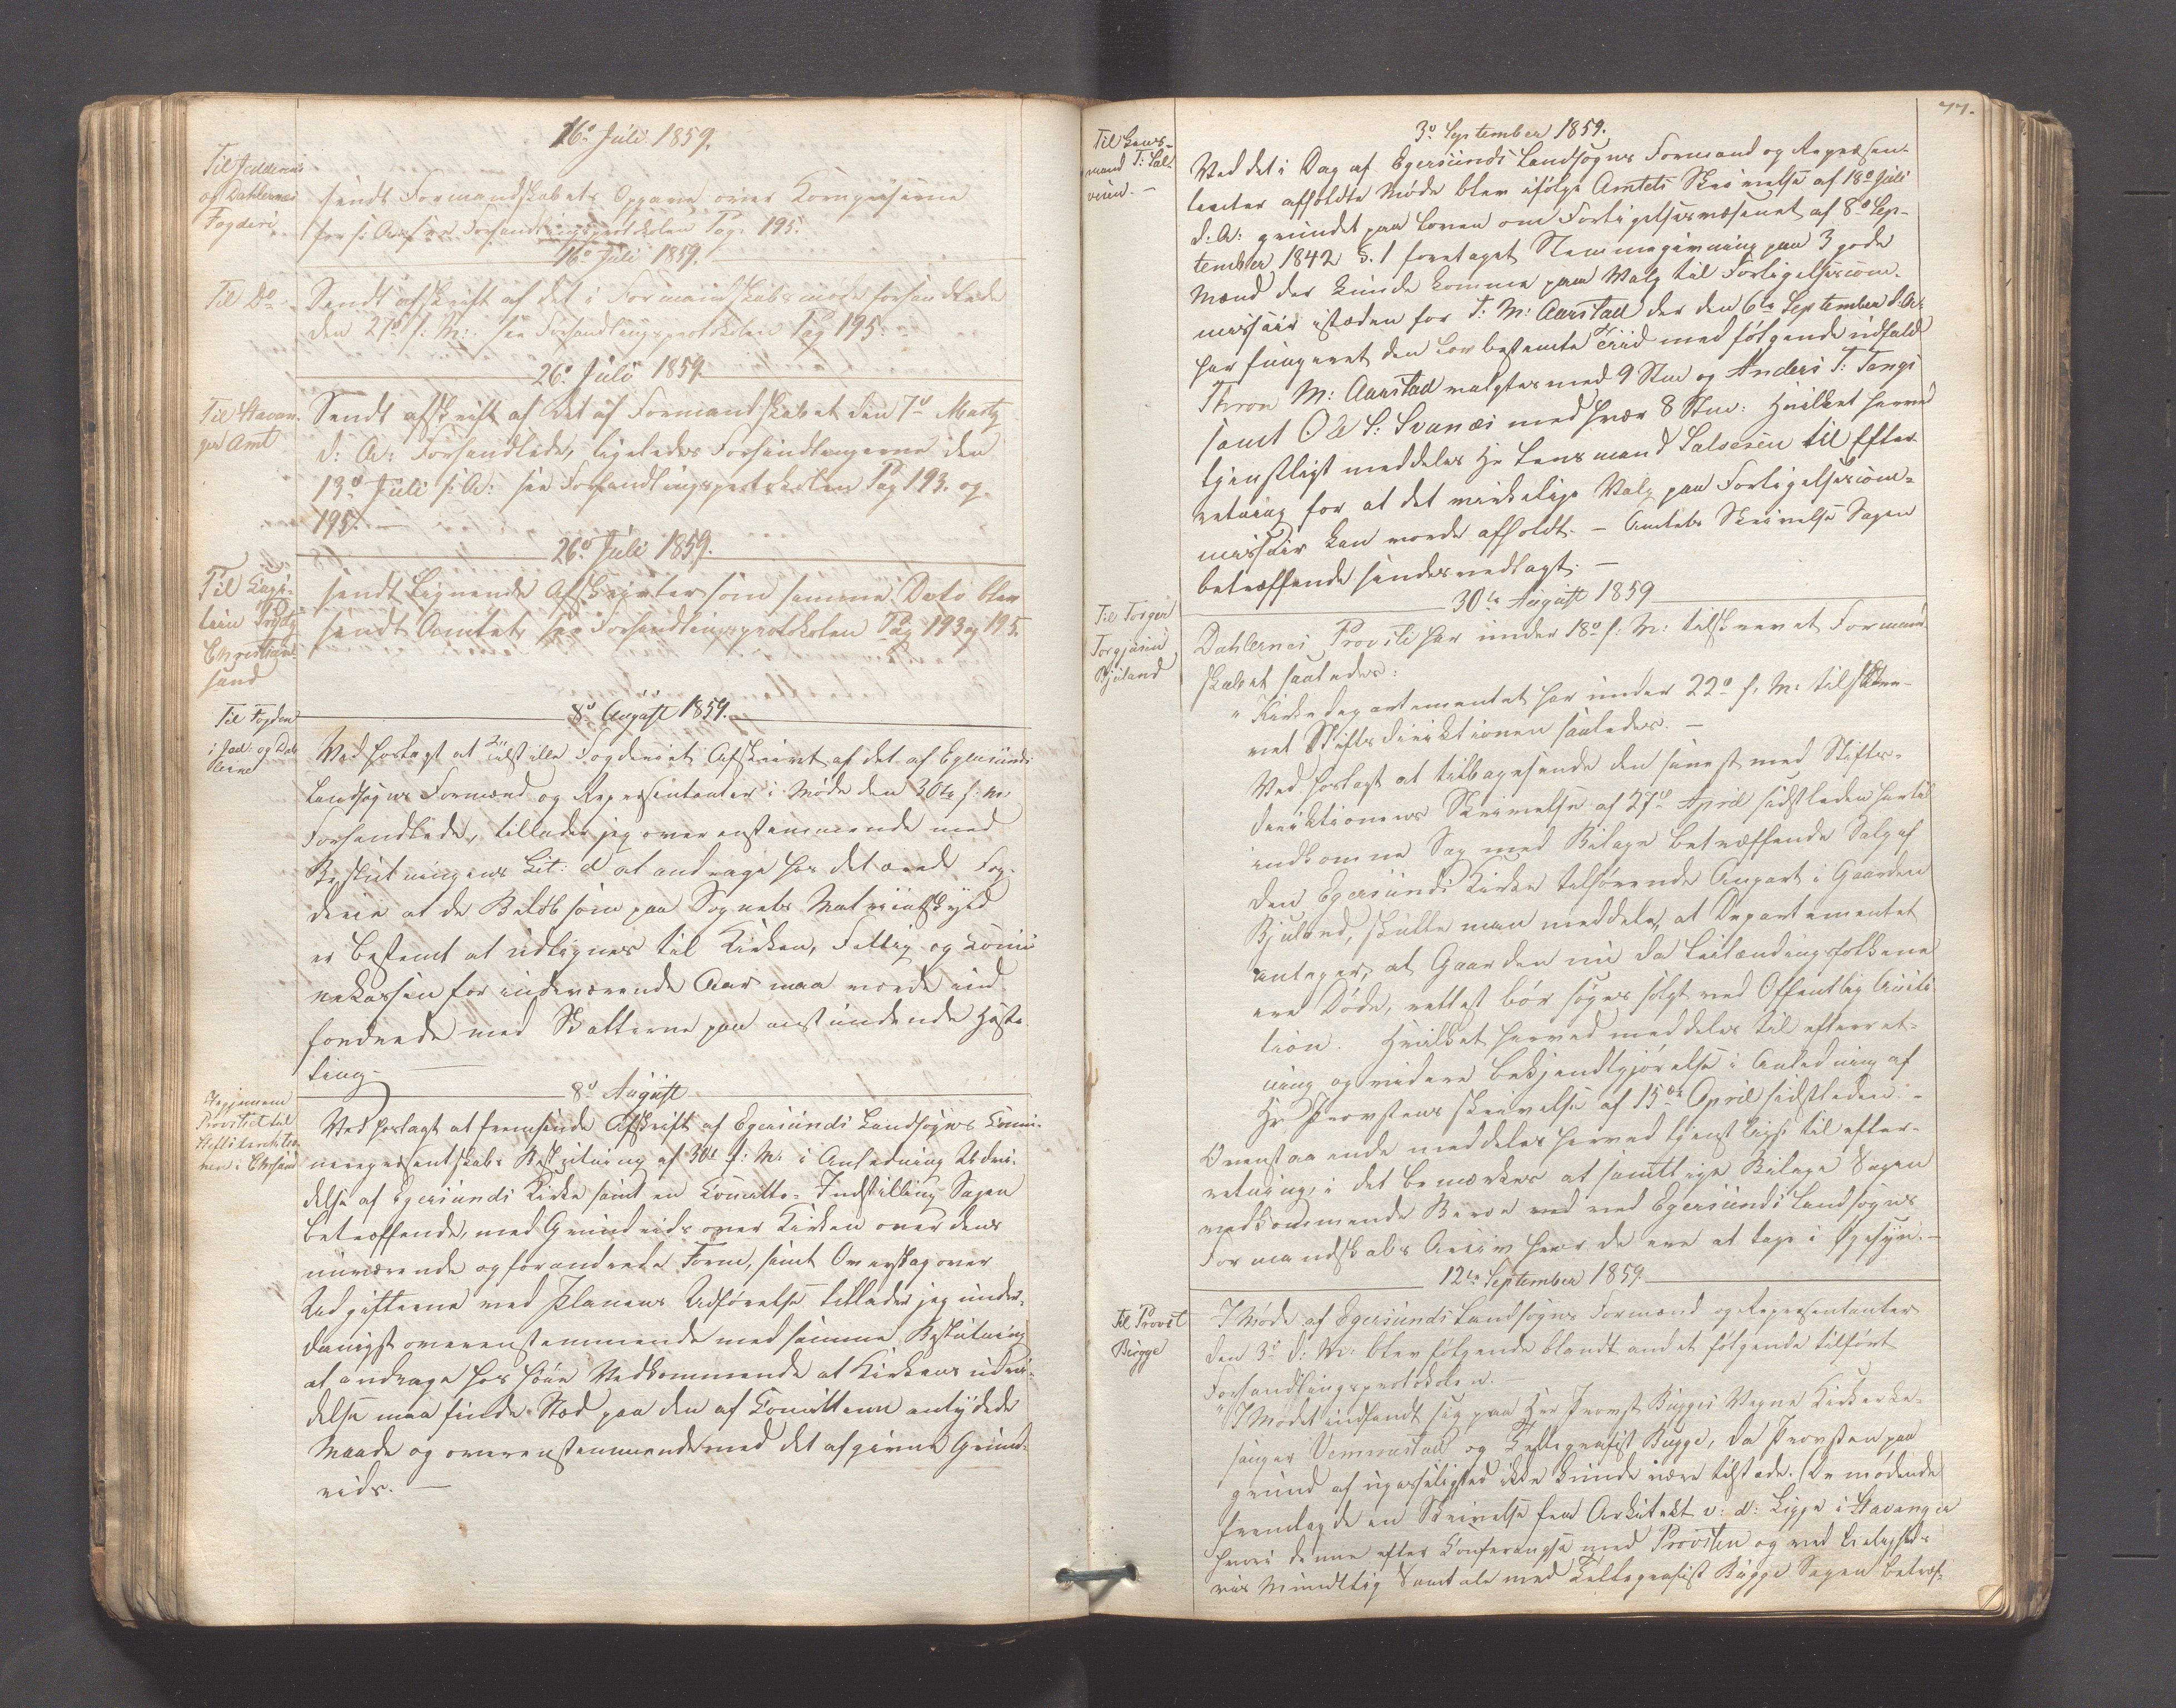 16de Juli 1859.
Til Jædderens
og Dahlernes
Fogderi
sendt Formandskabets Opgave over Kornpriserne
for f: A: see Forhandlingsprotokolen Pag. 195.
16de Juli 1859.
Til Do
Sendt afskrift af det i Formandskabsmøde forhandlede
den 27de f: M: see Forhandlingsprotokolen Pag 195.
26de Juli 1859.
Til Stavan-
ger Amt
Sendt afskrift af det af Formandskabet den 7de Martz
d: A: Forhandlede, ligeledes Forhandlingerne den
13de Juli s: A: see Forhandlingsprotokollen Pag 193. og
195. —
26de Juli 1859.
Til Capi-
tein
Christian-
sand
sendt Lignende Afskrifter som samme Dato blev
sendt Amtet see Forhandlingsprotokolen Pag 193 og 195.
8de August 1859.
Til Fogden
i Jæd: og Dah
lerne
Ved hoslagt at tilstille Fogderiet Afskrivt af det af Egersunds
Landsogns Formænd og Repræsentanter i Møde den 30te f: M:
Forhandlede, tillader jeg overenstemmende med
Beslutningens Lit: d at andrage hos det ærede Fog-
derie at de Beløb som paa Sognets Matriculskyld
er bestemt at udlignes til Kirken, Fattig og Comu
nekassen for indeværende Aar maa vorde ind
fordrede med Skatterne paa anstundende Høste
ting. —
8de August
Igjennem
Provstiet til
Stiftsdirektio-
nen i Chrsand
Ved hoslagt at fremsende Afskrift af Egersunds Landsogns Comu-
nerepresentskabs Beslutning af 30te f: M: i Anledning Udvi-
delse af Egersunds Kirke samt en Comitte-Indstilling Sagen
betræffende, med Grundrids over Kirken over dens
nuværende og forandrede Form, samt Overslag over
Udgifterne ved Planens Udførelse tillader jeg under-
danigst overenstemmende med samme Beslutning
at andrage hos høie Vedkommende at Kirkens udvi-
delse maa finde Sted paa den af Comitteen antydede
Maade og overenstemmende med det afgivne Grund-
rids. —
77.
3de September 1859.
Til Lens-
mand T: Sal-
vesen. —
Ved det i Dag af Egersunds Landsogns Formænd og Repræsen-
tanter afholdte Møde blev ifølge Amtets Skrivelse af 18de Juli
d: A: grundet paa Loven om Forligelsesvæsenet af 8de Sep-
tember 1842 §. 1 foretaget Stemmegivning paa 3 gode
Mænd der kunde komme paa Valg til Forligelsescom-
missair istæden for T: M: Aarstad der den 6te September d: A:
har fungeret den Lovbestemte Tiid med følgende udfald
Thron M: Aarstad valgtes med 9 Stm og Anders T: Tengs
samt Ole S: Svanæs med hver 8 Stm: Hvilket herved
tjenstligst meddeles Hr Lensmand Salvesen til Efter-
retning for at det virkelige Valg paa Forligelsescom-
missair kan vorde afholdt. — Amtets Skrivelse Sagen
betræffende sendes vedlagt. —
30te August 1859
Til Torger
Torgjusen
Bjuland
Dahlernes Provsti har under 18de f: M: tilskrevet Formand
skabet saaledes:
"Kirkedepartementet har under 22de f: M: tilskre-
vet Stiftsdirektionen saaledes. —
Ved hoslagt at tilbagesende den senest med Stifts-
direktionens Skrivelse af 27de April sidstleden hertil
indkomne Sag med Bilage betræffende Salg af
den Egersunds Kirke tilhørende Anpart i Gaarden
Bjuland, skulle man meddele, at Departementet
antager, at Gaarden nu da Leilændingsfolkene
ere Døde, rettest bør søges solgt ved Offentlig Auc-
tion. Hvilket herved meddeles til efterret-
ning og videre bekjendtgjørelse i Anledning af
Hr Provstens skrivelse af 15de April sidstleden. –
Ovenstaaende meddeles herved tjenstligst til efter-
retning, i det bemærkes at samtlige Bilage Sagen
vedkommende Beroe ved Egersunds Landsogns
Formandskabs Arciv hvor de ere at tage i Øiesyn. —
12te September 1859.
Til Provst
Bugge
I Møde af Egersunds Landsogns Formænd og Repræsentanter
den 3de d: M: blev følgende blandt andet følgende tilført
Forhandlingsprotokolen. —
"I Mødet indfandt sig paa Hr Provst Bugges Vegne Kirke-
sanger Vemmestad og Tellegrafist Bugge, da Provsten paa
grund af upasselighed ikke kunde være tilstede. De mødende
fremlagde en Skrivelse fra Arkitekt v: d: Lippe i Stavanger
hvori denne efter Conferangse med Provsten og ved Leilighed-
vis Mundtlig Samtale med Tellegrafist Bugge Sagen betræf-